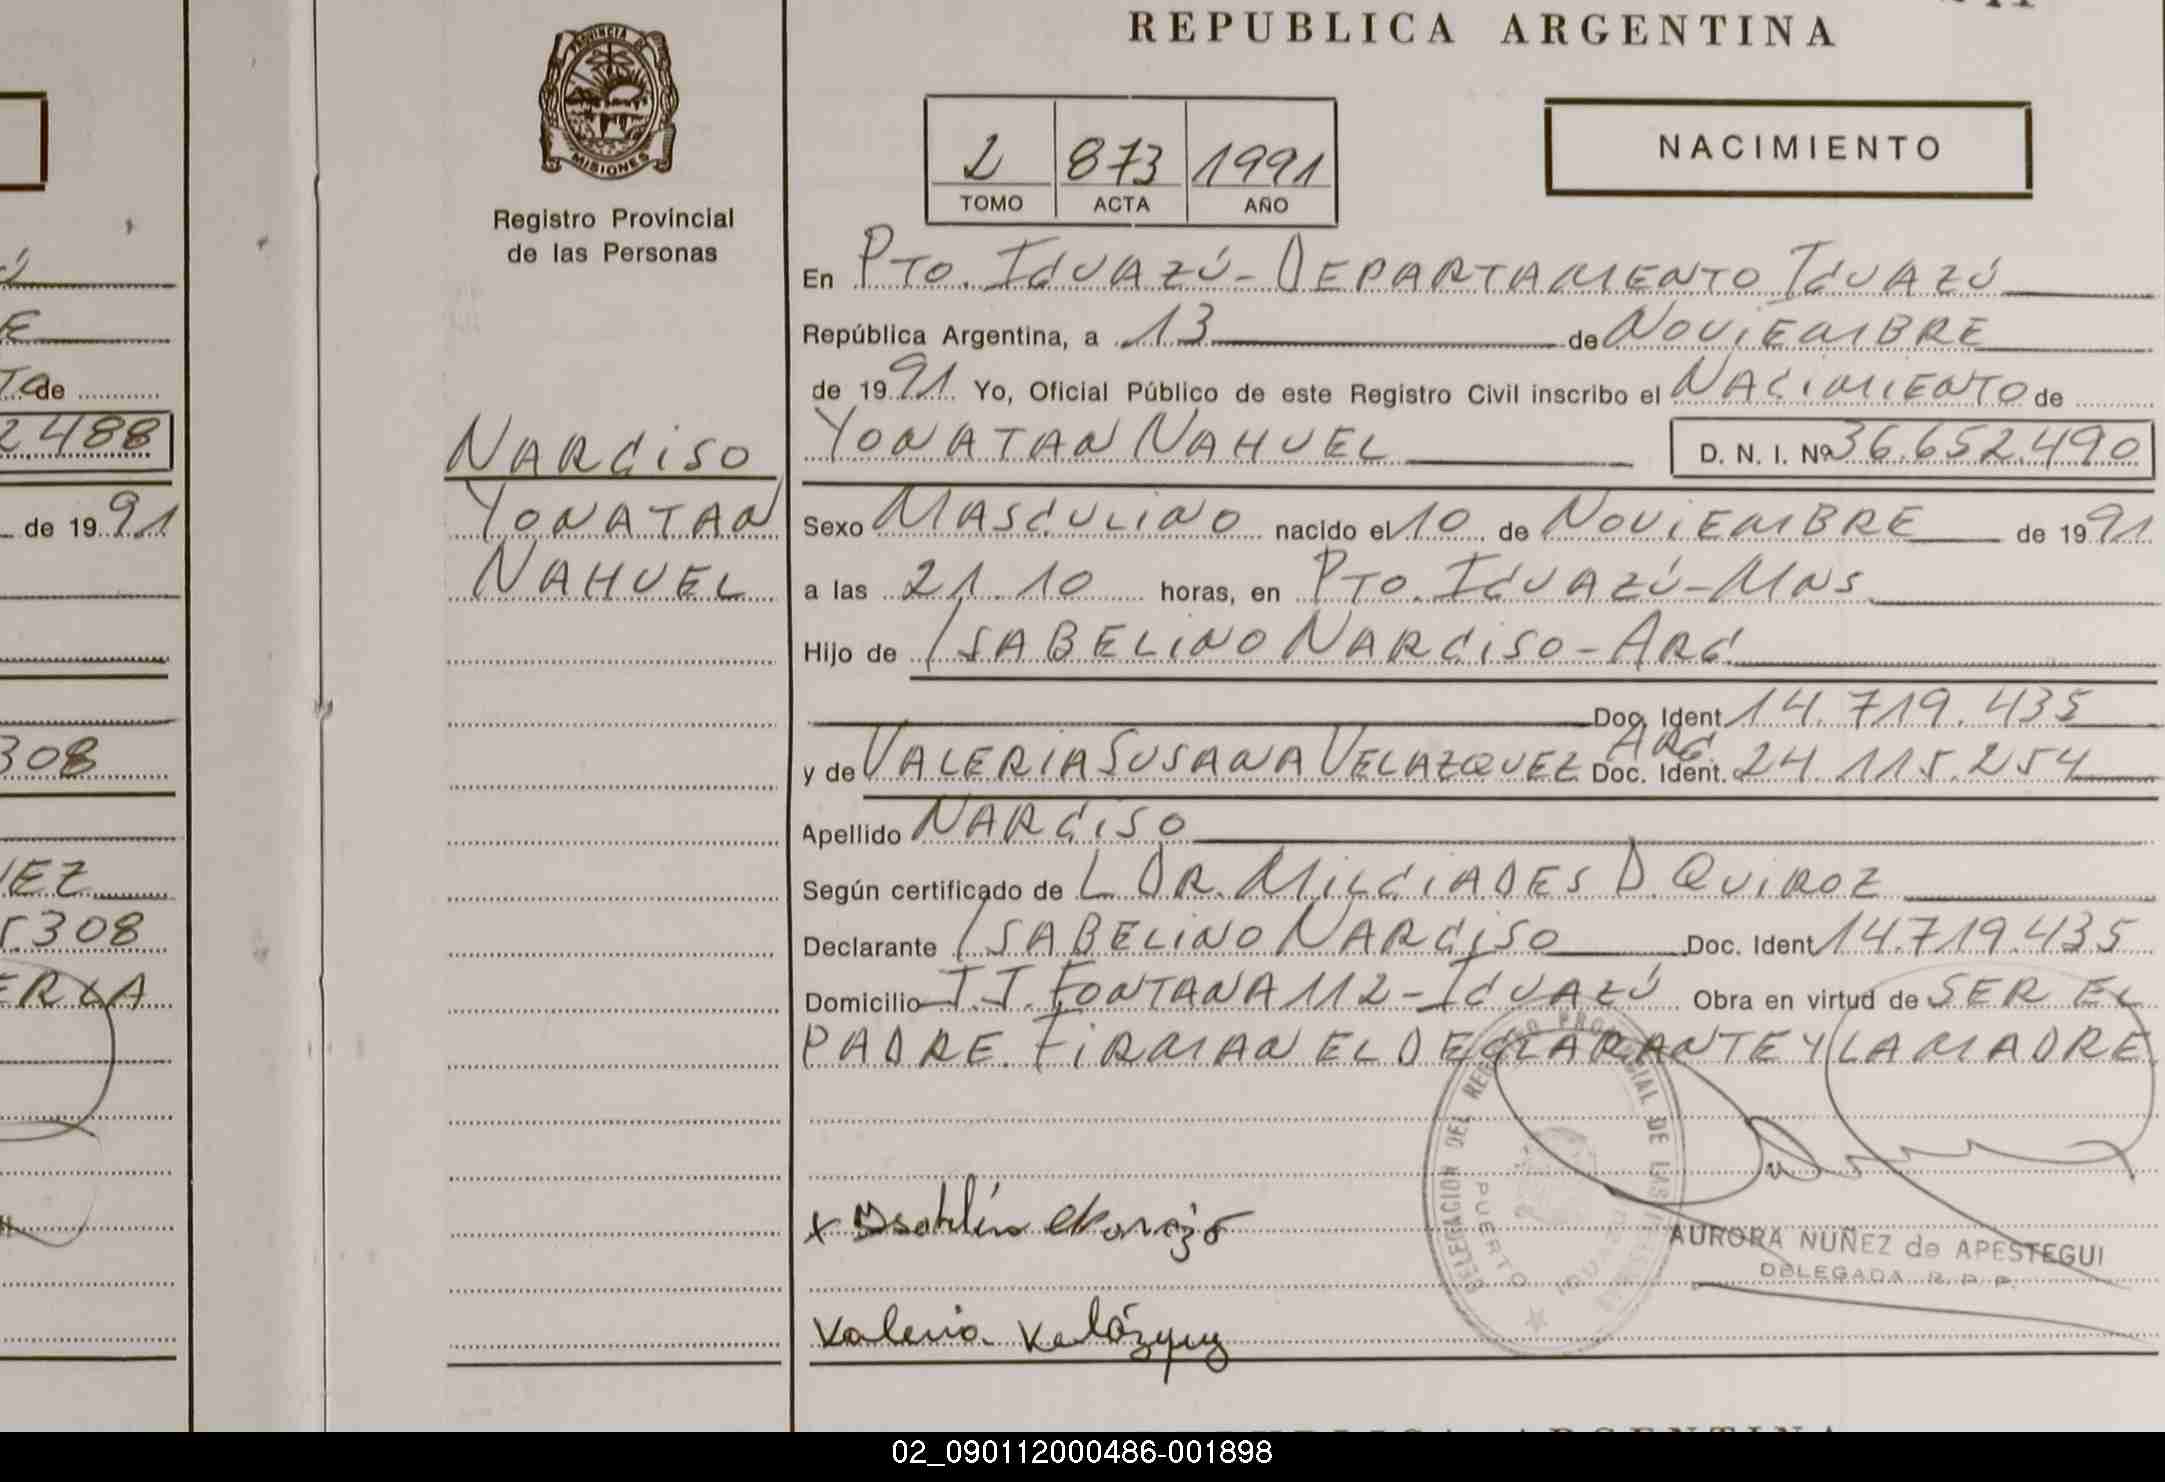 REPUBLICA ARGENTINA
PROVINCIA DE
MISIONES
Registro Provincial
de las Personas
2 873 1991
TOMO ACTA AÑO
NACIMIENTO
En PTO. IGUAZÚ - DEPARTAMENTO IGUAZÚ
República Argentina, a 13 de NOVIEMBRE
de 1991 Yo, Oficial Público de este Registro Civil inscribo el NACIMIENTO de
YONATAN NAHUEL D. N. I. Nº 36.652.490
NARCISO
YONATAN
NAHUEL
Sexo MASCULINO nacido el 10 de NOVIEMBRE de 1991
a las 21.10 horas, en PTO. IGUAZÚ - MNS
Hijo de ISABELINO NARCISO - ARG
Doc. Ident 14.719.435
ARG.
y de VALERIA SUSANA VELAZQUEZ Doc. Ident. 24.115.254
Apellido NARCISO
Según certificado de L DR. MILCIADES D. QUIROZ
Declarante ISABELINO NARCISO Doc. Ident 14.719.435
Domicilio J.J. FONTANA 112 - IGUAZÚ Obra en virtud de SER EL
PADRE. FIRMAN EL DECLARANTE Y LA MADRE
DELEGACION DEL REGISTRO PROVINCIAL DE LAS PERSONAS
PUERTO IGUAZU
AURORA NUÑEZ de APESTEGUI
DELEGADA R. P. P.
Valeria Velázquez
de
2.488
de 1991
308
5.308
02_090112000486-001898